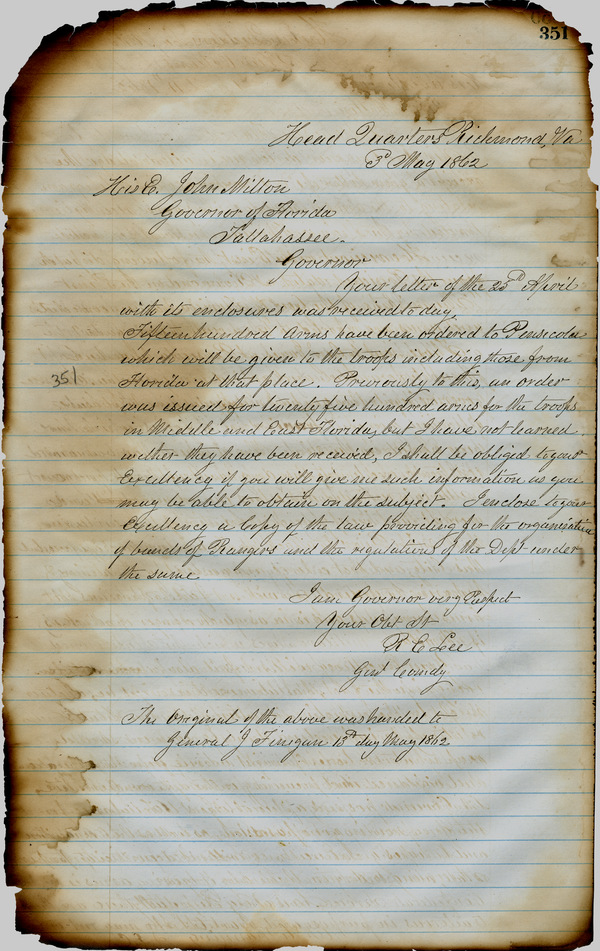 351
Head Quarters Richmond, Va
3d May 1862
His E. John Milton
Governor of Florida
Tallahassee.
Governor
Your letter of the 25th April
with its enclosures was received to day,
Fifteen hundred Arms have been ordered to Pensicola
which will be given to the troops including those from
351
Florida at that place. Previously to this, an order
was issued for twenty five hundred arms for the troops
in Middle and East Florida, but I have not learned
wether they have been received, I shall be obliged to your
Excellency if you will give me such information as you
may be able to obtain on the subject. I enclose to your
Excellency a Copy of the law providing for the organization
of bands of Rangers and the regulations of the Dept under
the same
I am Governor very Respct
Your Obt St
R E Lee
Genl Comdg
The Original of the above was handed to
General J Finegan 13th day May 1862